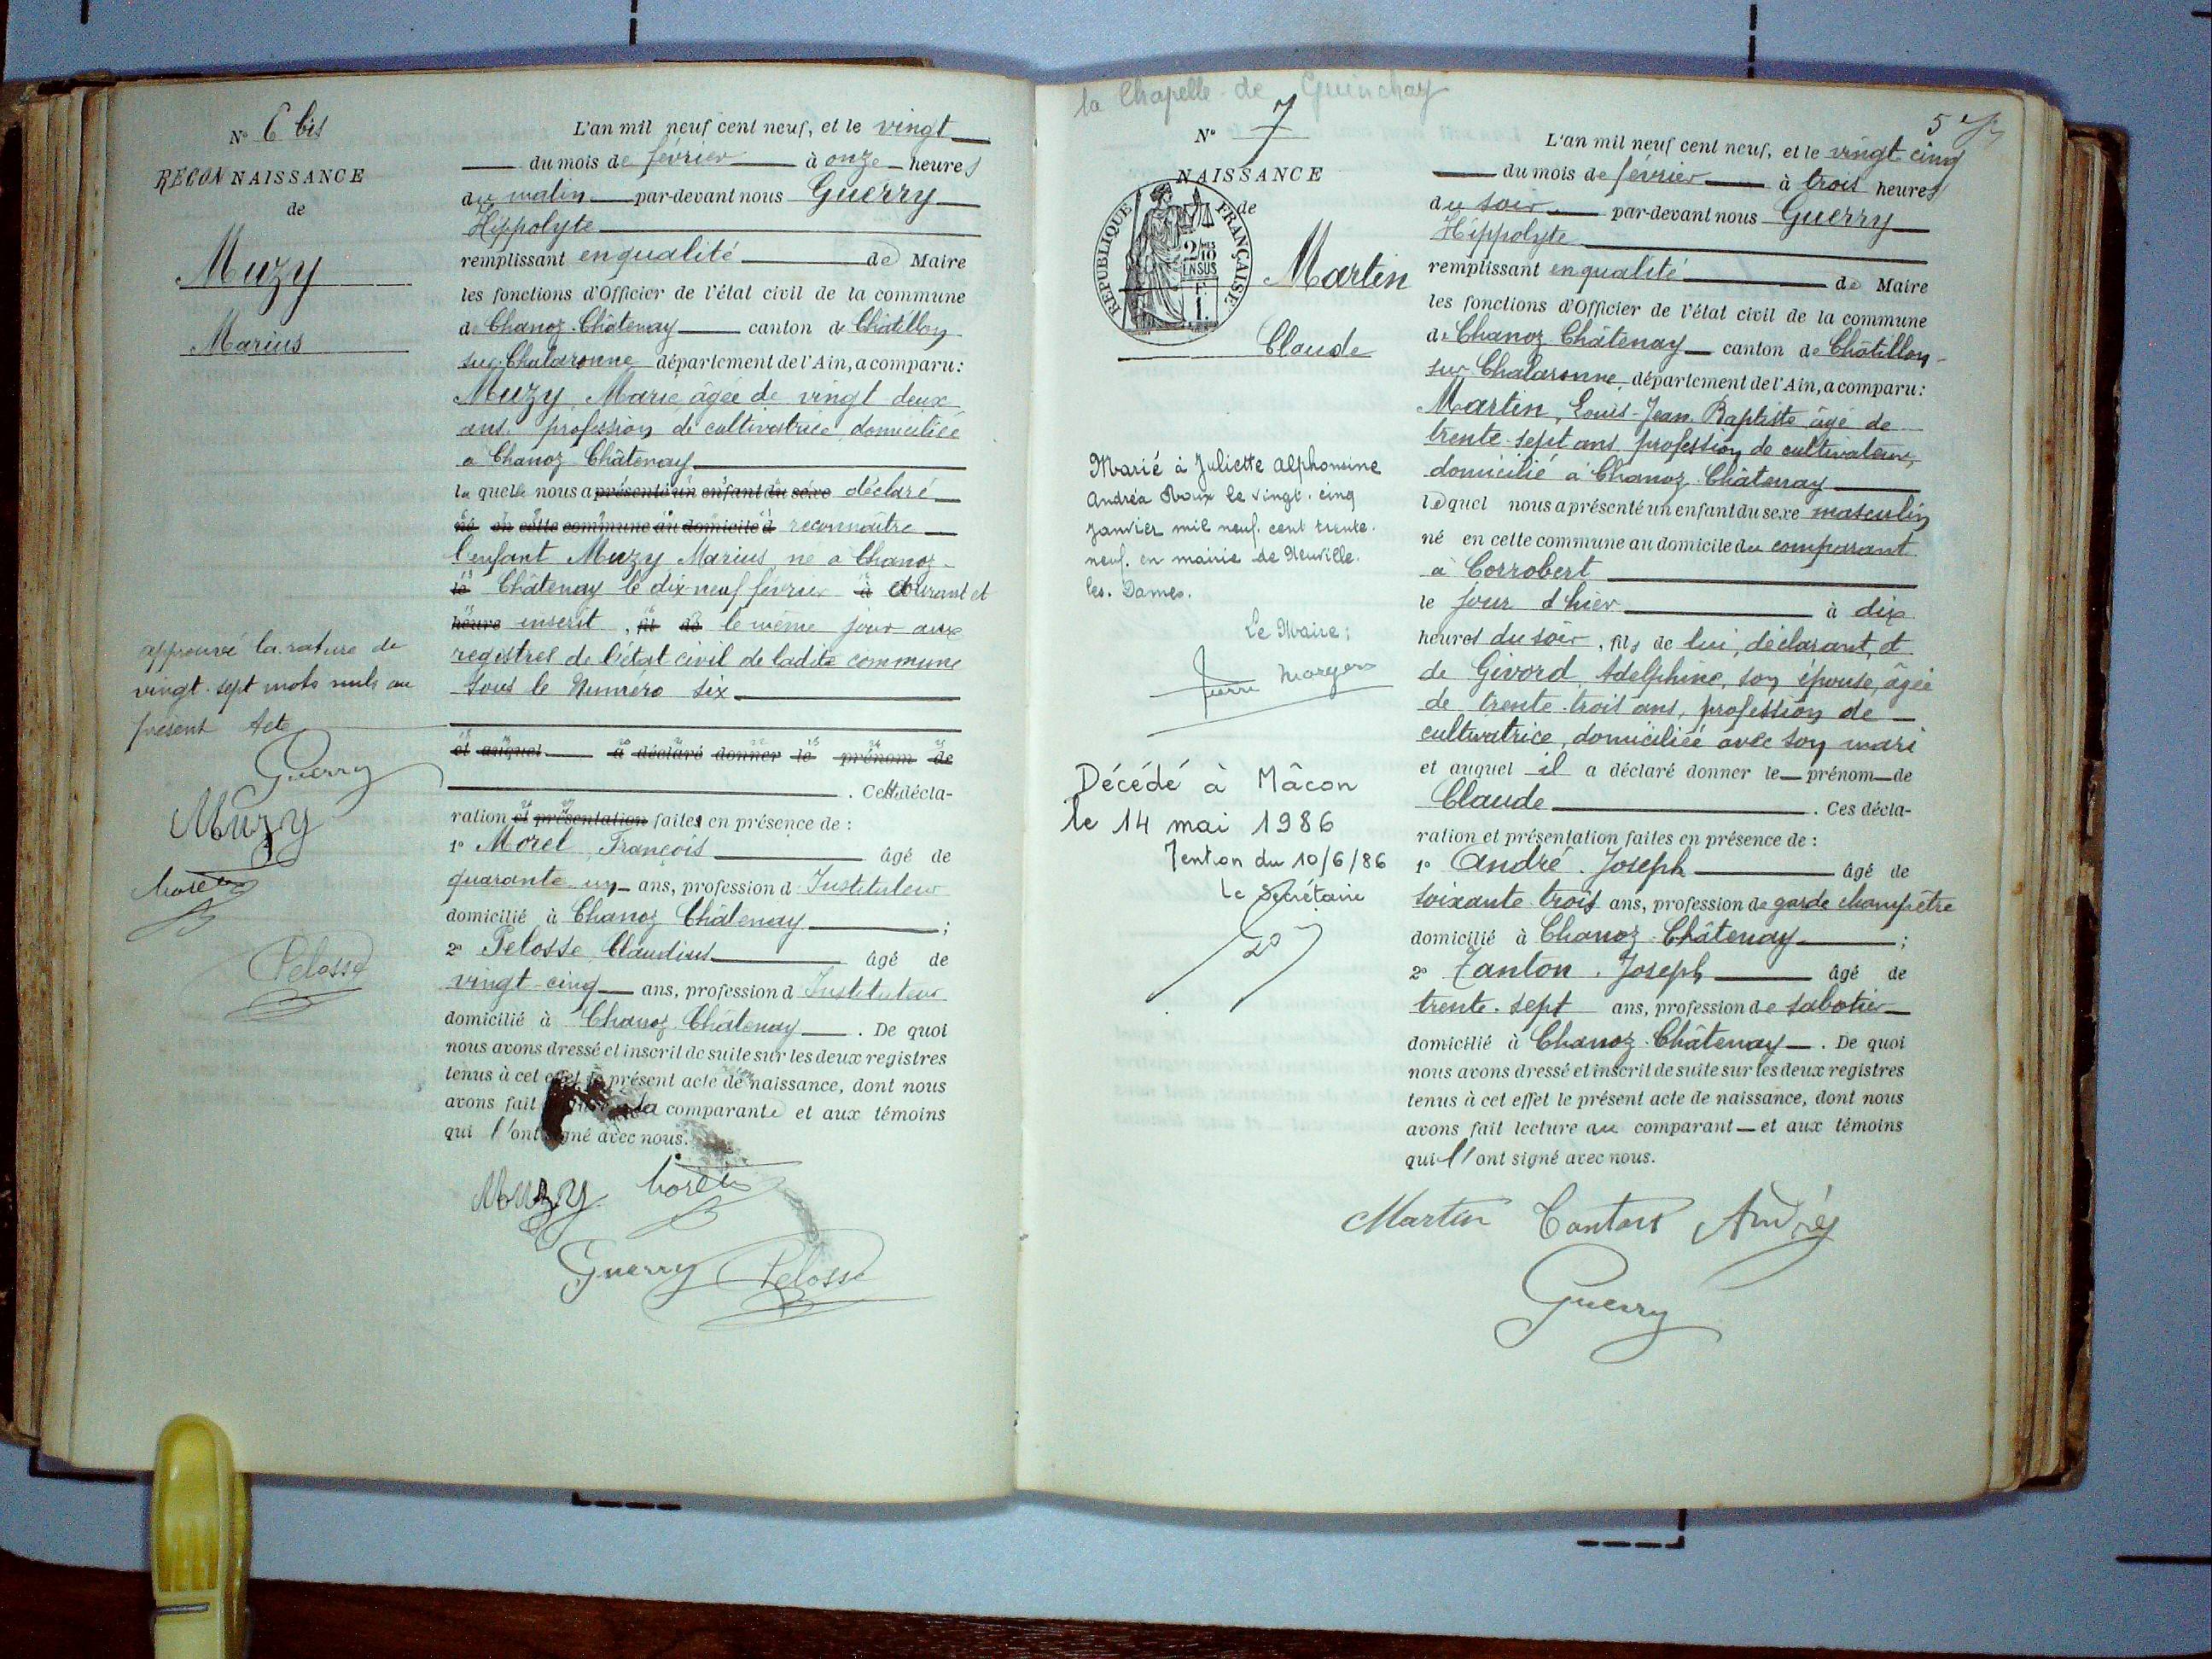 N° 6 bis
RECONNAISSANCE
de
Muzy
Marius
approuvé la rature de
vingt-sept mots nuls au
présent Acte
Guerry
Muzy
Morel
Pelosse
L'an mil neuf cent neuf, et le vingt
du mois de février à onze heures
du matin par-devant nous Guerry
Hippolyte
remplissant en qualité de Maire
les fonctions d'Officier de l'état civil de la commune
de Chanoz-Châtenay canton de Châtillon
sur-Chalaronne département de l'Ain, a comparu :
Muzy, Marie, âgée de vingt deux
ans, profession de cultivatrice, domiciliée
à Chanoz-Châtenay
laquelle nous a présenté un enfant du sexe déclaré
né en cette commune au domicile d reconnaître
l'enfant Muzy Marius né à Chanoz-
le Châtenay le dix-neuf février à courant et
heure inscrit, fil de le même jour aux
registres de l'état civil de ladite commune
sous le Numéro six
et auquel a déclaré donner le prénom de
. Cette décla-
ration et présentation faites en présence de :
1° Morel, François âgé de
quarante un ans, profession d'Instituteur
domicilié à Chanoz Châtenay ;
2° Pelosse, Claudius âgé de
vingt-cinq ans, profession d'Instituteur
domicilié à Chanoz Châtenay . De quoi
nous avons dressé et inscrit de suite sur les deux registres
tenus à cet effet le présent acte de naissance, dont nous
avons fait à la comparante et aux témoins
qui l'ont signé avec nous.
Muzy Morel
Guerry Pelosse
la Chapelle-de Guinchay
N° 7
NAISSANCE
de
RÉPUBLIQUE FRANÇAISE
2/10
EN SUS
1
Martin
Claude
Marié à Juliette Alphonsine
Andréa Roux le vingt-cinq
janvier mil neuf cent trente-
neuf en mairie de Neuville-
les-Dames.
Le Maire :
Décédé à Mâcon
le 14 mai 1986
Mention du 10/6/86
Le Secrétaire
5
L'an mil neuf cent neuf, et le vingt cinq
du mois de février à trois heures
du soir par-devant nous Guerry
Hippolyte
remplissant en qualité de Maire
les fonctions d'Officier de l'état civil de la commune
de Chanoz Châtenay canton de Châtillon-
sur-Chalaronne, département de l'Ain, a comparu :
Martin, Louis-Jean-Baptiste âgé de
trente-sept ans, profession de cultivateur,
domicilié à Chanoz-Châtenay
lequel nous a présenté un enfant du sexe masculin
né en cette commune au domicile du comparant
à Corrobert
le jour d'hier à dix
heures du soir, fils de lui, déclarant, et
de Givord, Adelphine, son épouse, âgée
de trente-trois ans, profession de
cultivatrice, domiciliée avec son mari
et auquel il a déclaré donner le prénom de
Claude . Ces décla-
ration et présentation faites en présence de :
1° André, Joseph âgé de
soixante-trois ans, profession de garde champêtre
domicilié à Chanoz-Châtenay ;
2° Tanton, Joseph âgé de
trente-sept ans, profession de sabotier
domicilié à Chanoz-Châtenay . De quoi
nous avons dressé et inscrit de suite sur les deux registres
tenus à cet effet le présent acte de naissance, dont nous
avons fait lecture au comparant et aux témoins
qui l'ont signé avec nous.
Martin Tanton André
Guerry